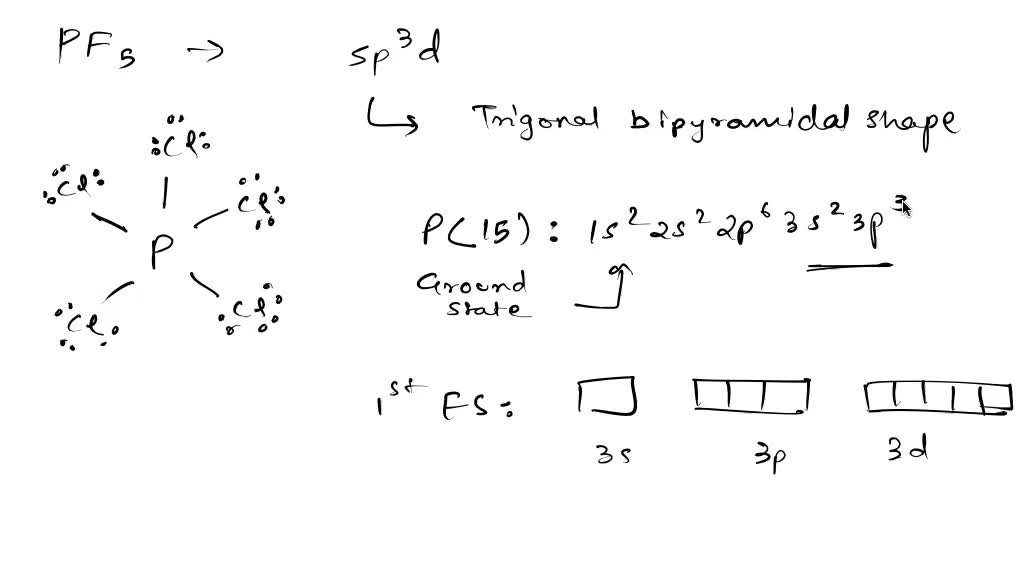 PF5 → sp³d
↳ Trigonal bipyramidal shape
:Cl:
:Cl:
Cl:
P
:Cl:
:Cl:
P(15): 1s² 2s² 2p⁶ 3s² 3p³
Ground
state
1st ES:
3s 3p 3d